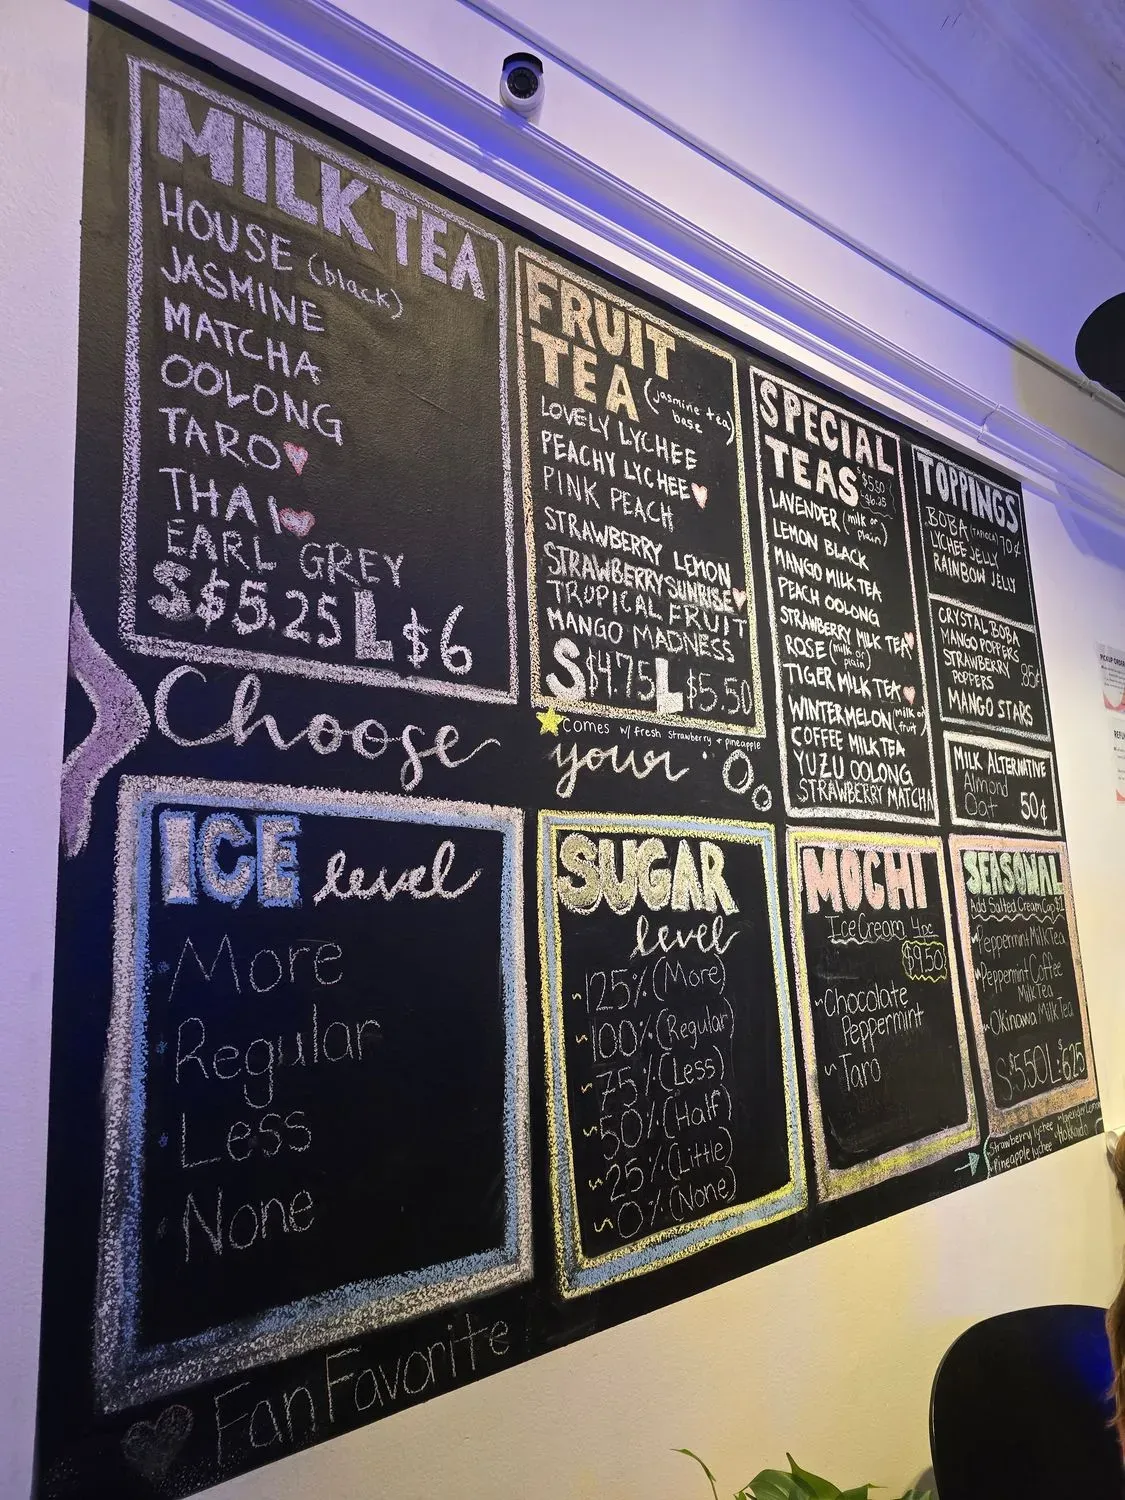 MILK TEA
HOUSE (black)
JASMINE
MATCHA
OOLONG
TARO
THAI
EARL GREY
S $5.25 L $6
FRUIT
TEA (jasmine tea
base)
LOVELY LYCHEE
PEACHY LYCHEE
PINK PEACH
STRAWBERRY LEMON
STRAWBERRY SUNRISE
TROPICAL FRUIT
MANGO MADNESS
S $4.75 L $5.50
comes w/ fresh strawberry + pineapple
SPECIAL
TEAS $5.50
$6.25
LAVENDER (milk or
plain)
LEMON BLACK
MANGO MILK TEA
PEACH OOLONG
STRAWBERRY MILK TEA
ROSE (milk or
plain)
TIGER MILK TEA
WINTERMELON (milk or
fruit)
COFFEE MILK TEA
YUZU OOLONG
STRAWBERRY MATCHA
TOPPINGS
BOBA (tapioca) 70¢
LYCHEE JELLY
RAINBOW JELLY
CRYSTAL BOBA
MANGO POPPERS
STRAWBERRY 85¢
POPPERS
MANGO STARS
MILK ALTERNATIVE
Almond
Oat 50¢
Choose your
ICE level
More
Regular
Less
None
SUGAR
level
~125% (More)
~100% (Regular)
~75% (Less)
~50% (Half)
~25% (Little)
~0% (None)
MOCHI
Ice Cream 4pc
$9.50
~Chocolate
Peppermint
~Taro
SEASONAL
Add Salted Cream Cap $1
~Peppermint Milk Tea
~Peppermint Coffee
Milk Tea
~Okinawa Milk Tea
S:$5.50 L:$6.25
Strawberry lychee
Pineapple lychee
Hokkaido
Fan Favorite